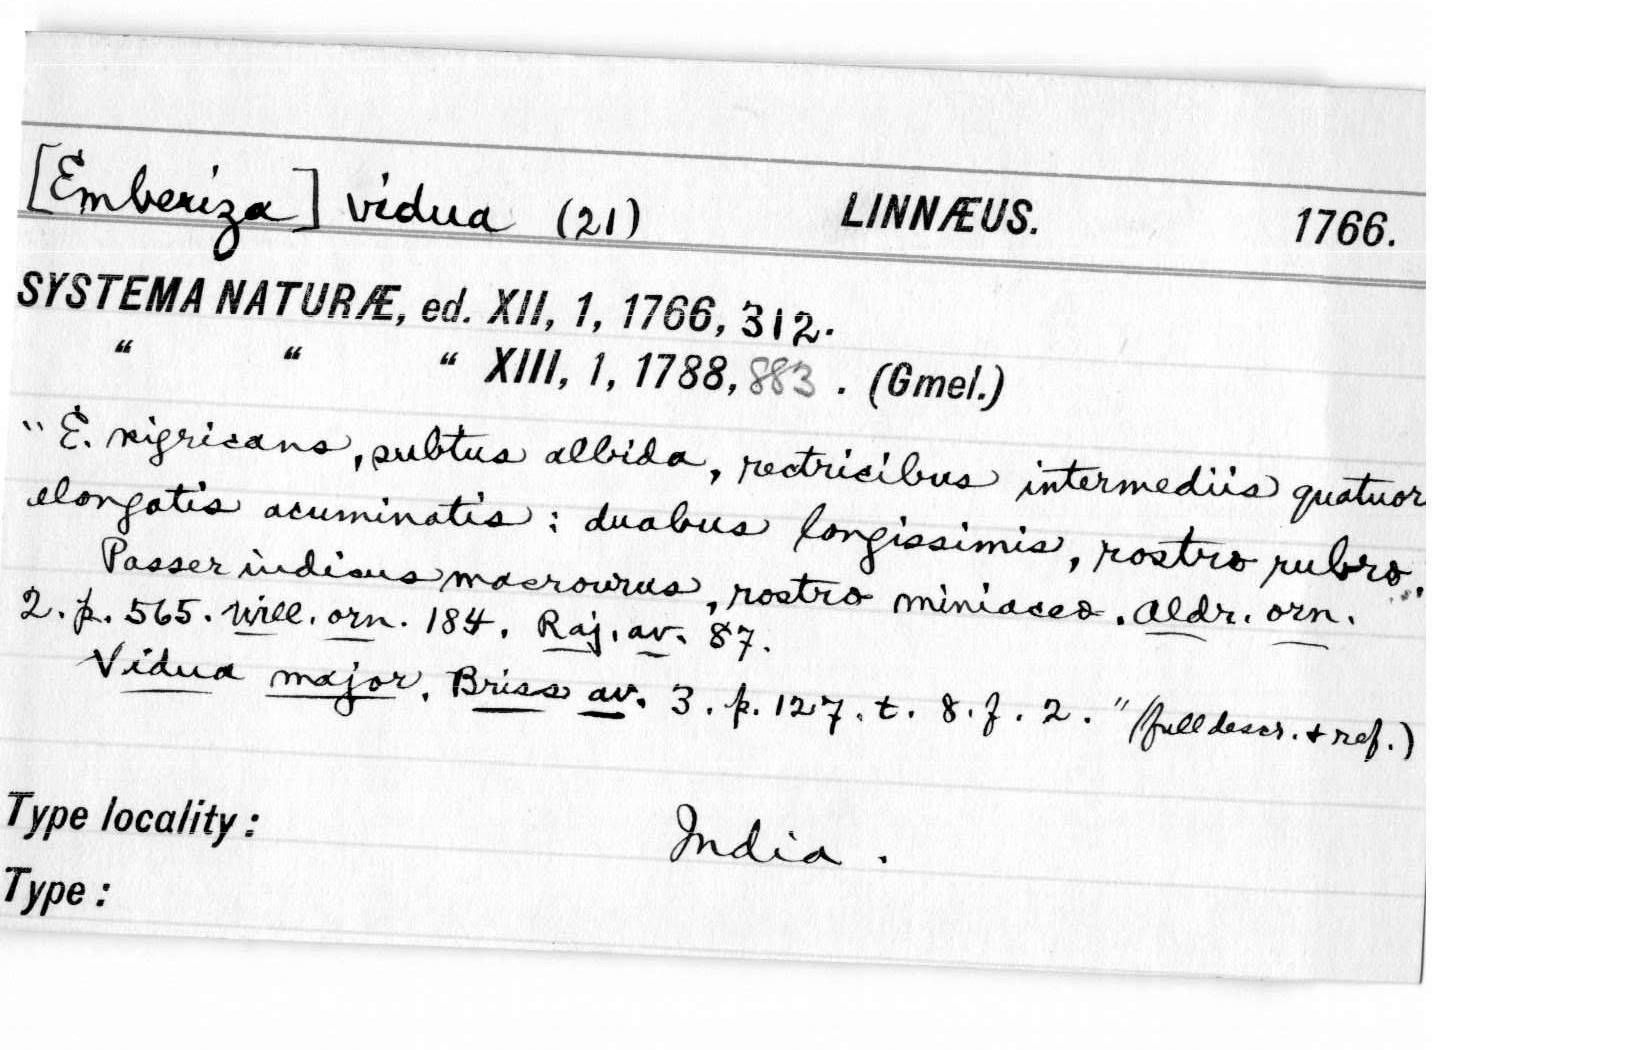 [Emberiza] vidua (21) LINNÆUS. 1766.
SYSTEMA NATURÆ, ed. XII, 1, 1766, 312.
“ “ “ XIII, 1, 1788, 883 . (Gmel.)
“E. nigricans, subtus albida, rectricibus intermediis quatuor
elongatis acuminatis : duabus longissimis, rostro rubro.
Passer indicus macrourus, rostro miniaceo. Aldr. orn.
2. p. 565. Will. orn. 184. Raj. av. 87.
Vidua major. Briss av. 3. p. 127. t. 8. f. 2. ” (full descr. + ref.)
Type locality : India .
Type :